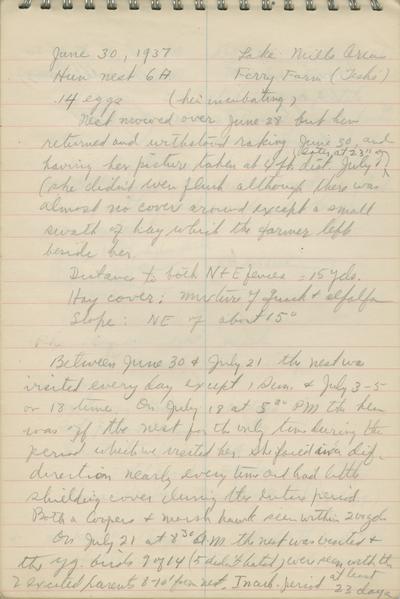 June 30, 1937 Lake Mills Area
Hun nest 6A Ferry Farm (Teske)
14 eggs (hen incubating)
Nest mowed over June 28 but hen
returned and withstood raking June 30, and
(later at 23" on
having her picture taken at 4 ft. dist. July 1)
(she didn't even flush although there was
almost no cover around except a small
swath of hay which the farmer left
beside her.
Distance to both N + E fences = 15 yds.
Hay cover: mixture of Quack + alfalfa
Slope: NE of about 15°
Between June 30 & July 21 the nest was
visited every day except 1 Sun. & July 3-5
or 18 times. On July 18 at 5 30 PM the hen
was off the nest for the only time during the
period which we visited her. She faced in a dif.
direction nearly every time and had little
shielding cover during the entire period
Both a Coopers + marsh hawk seen within 200 yds
On July 21 at 8 30 A.M the nest was visited &
the yg. birds 9 of 14 (5 didn't hatch) were seen with the
2 excited parents 8-10' from nest. Incub. period at least
23 days